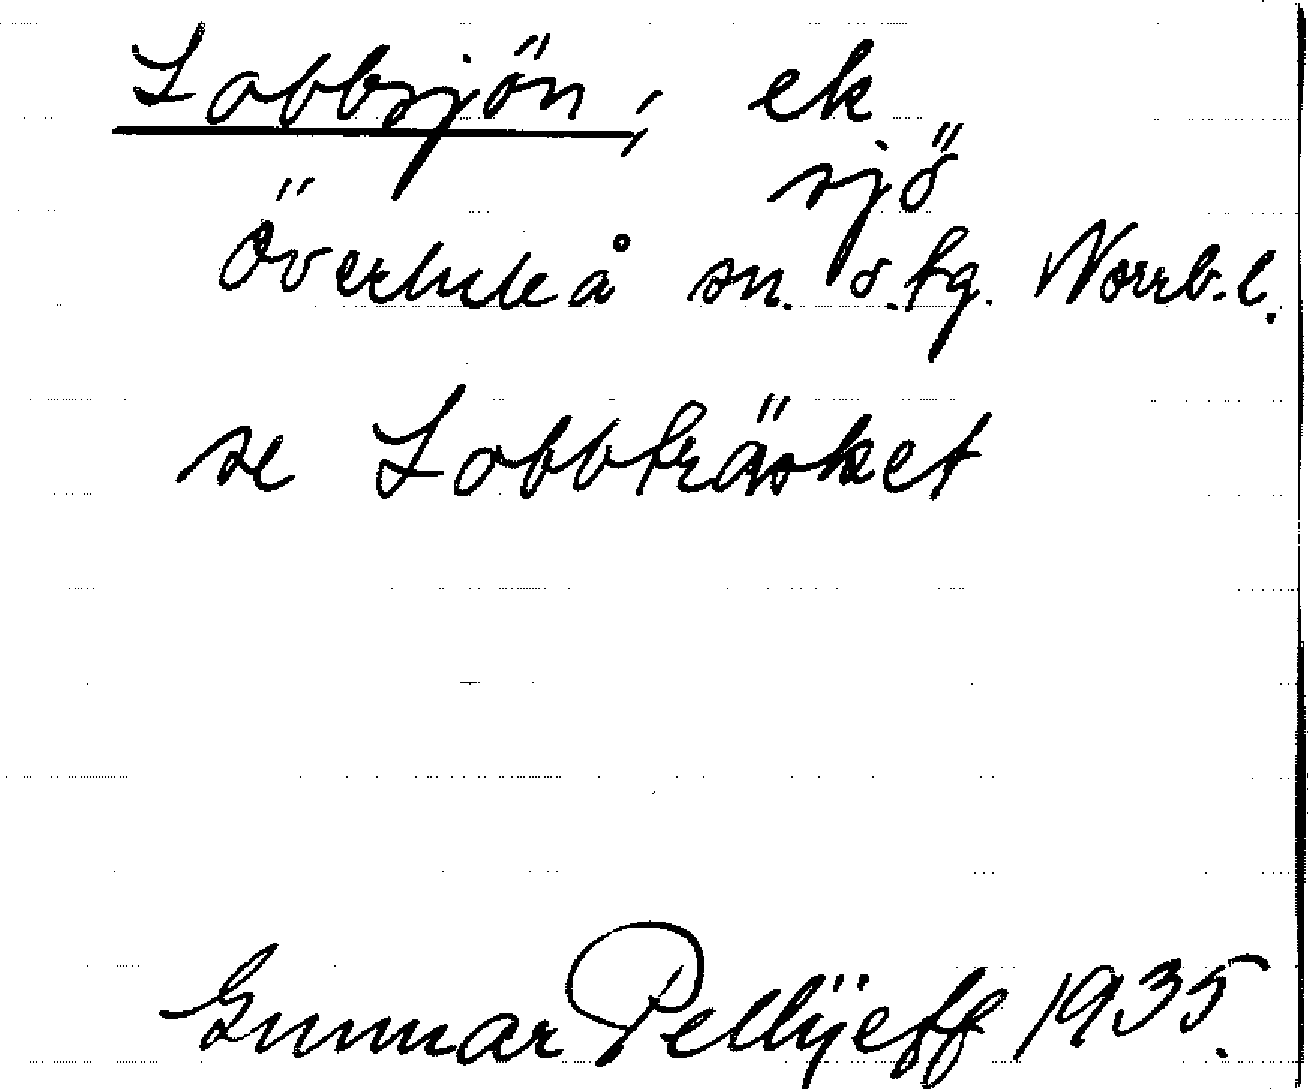 Lobbsjön; ek
sjö
Överluleå sn. o. tg. Norrb. l.
se Lobbträsket
Gunnar Pellijeff 1935.